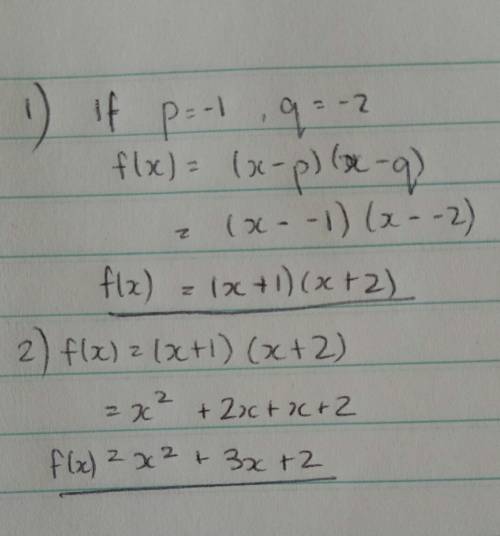 1) If p=-1 , q=-2
f(x) = (x-p)(x-q)
= (x--1)(x--2)
f(x) = (x+1)(x+2)
2) f(x) = (x+1)(x+2)
= x² + 2x+x+2
f(x) = x² + 3x+2